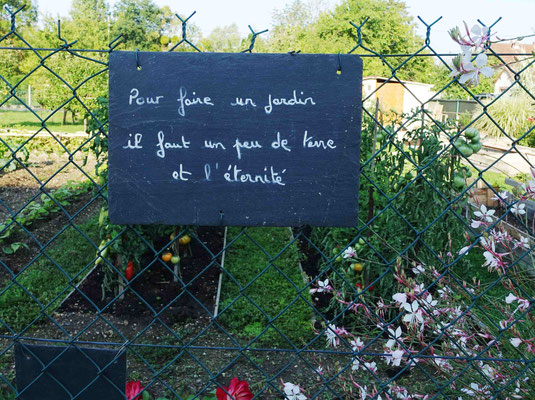 Pour faire un jardin
il faut un peu de terre
et l'éternité